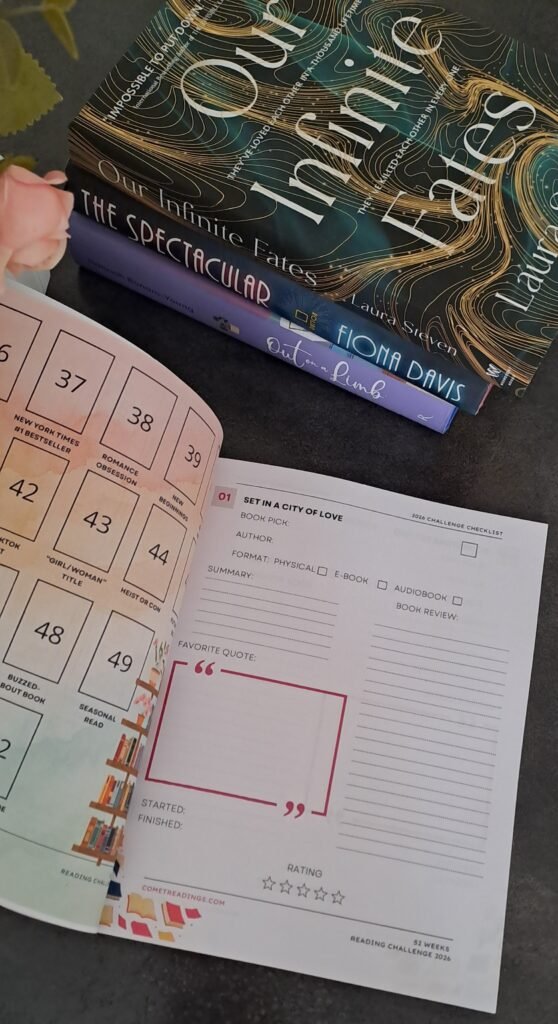 "IMPOSSIBLE TO PUT DOWN"
Our
THEY'VE LOVED EACH OTHER IN A THOUSAND LIFETIMES
Infinite
THEY'VE KILLED EACH OTHER IN EVERY ONE
Fates
Laura
Our Infinite Fates
Laura Steven
THE SPECTACULAR
FIONA DAVIS
Out on a Limb
37
38
39
NEW YORK TIMES
#1 BESTSELLER
ROMANCE
OBSESSION
NEW
BEGINNINGS
42
43
44
"GIRL/WOMAN"
TITLE
HEIST OR CON
48
49
BUZZED-
BOUT BOOK
SEASONAL
READ
READING CHAL
01
SET IN A CITY OF LOVE
2026 CHALLENGE CHECKLIST
BOOK PICK:
AUTHOR:
FORMAT: PHYSICAL
E-BOOK
AUDIOBOOK
SUMMARY:
BOOK REVIEW:
FAVORITE QUOTE:
“
”
STARTED:
FINISHED:
RATING
COMETREADINGS.COM
52 WEEKS
READING CHALLENGE 2026